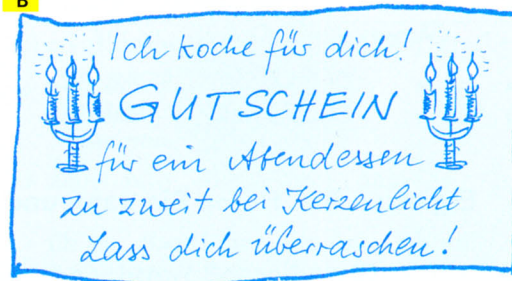 B
Ich koche für dich!
GUTSCHEIN
für ein Abendessen
zu zweit bei Kerzenlicht
Lass dich überraschen!